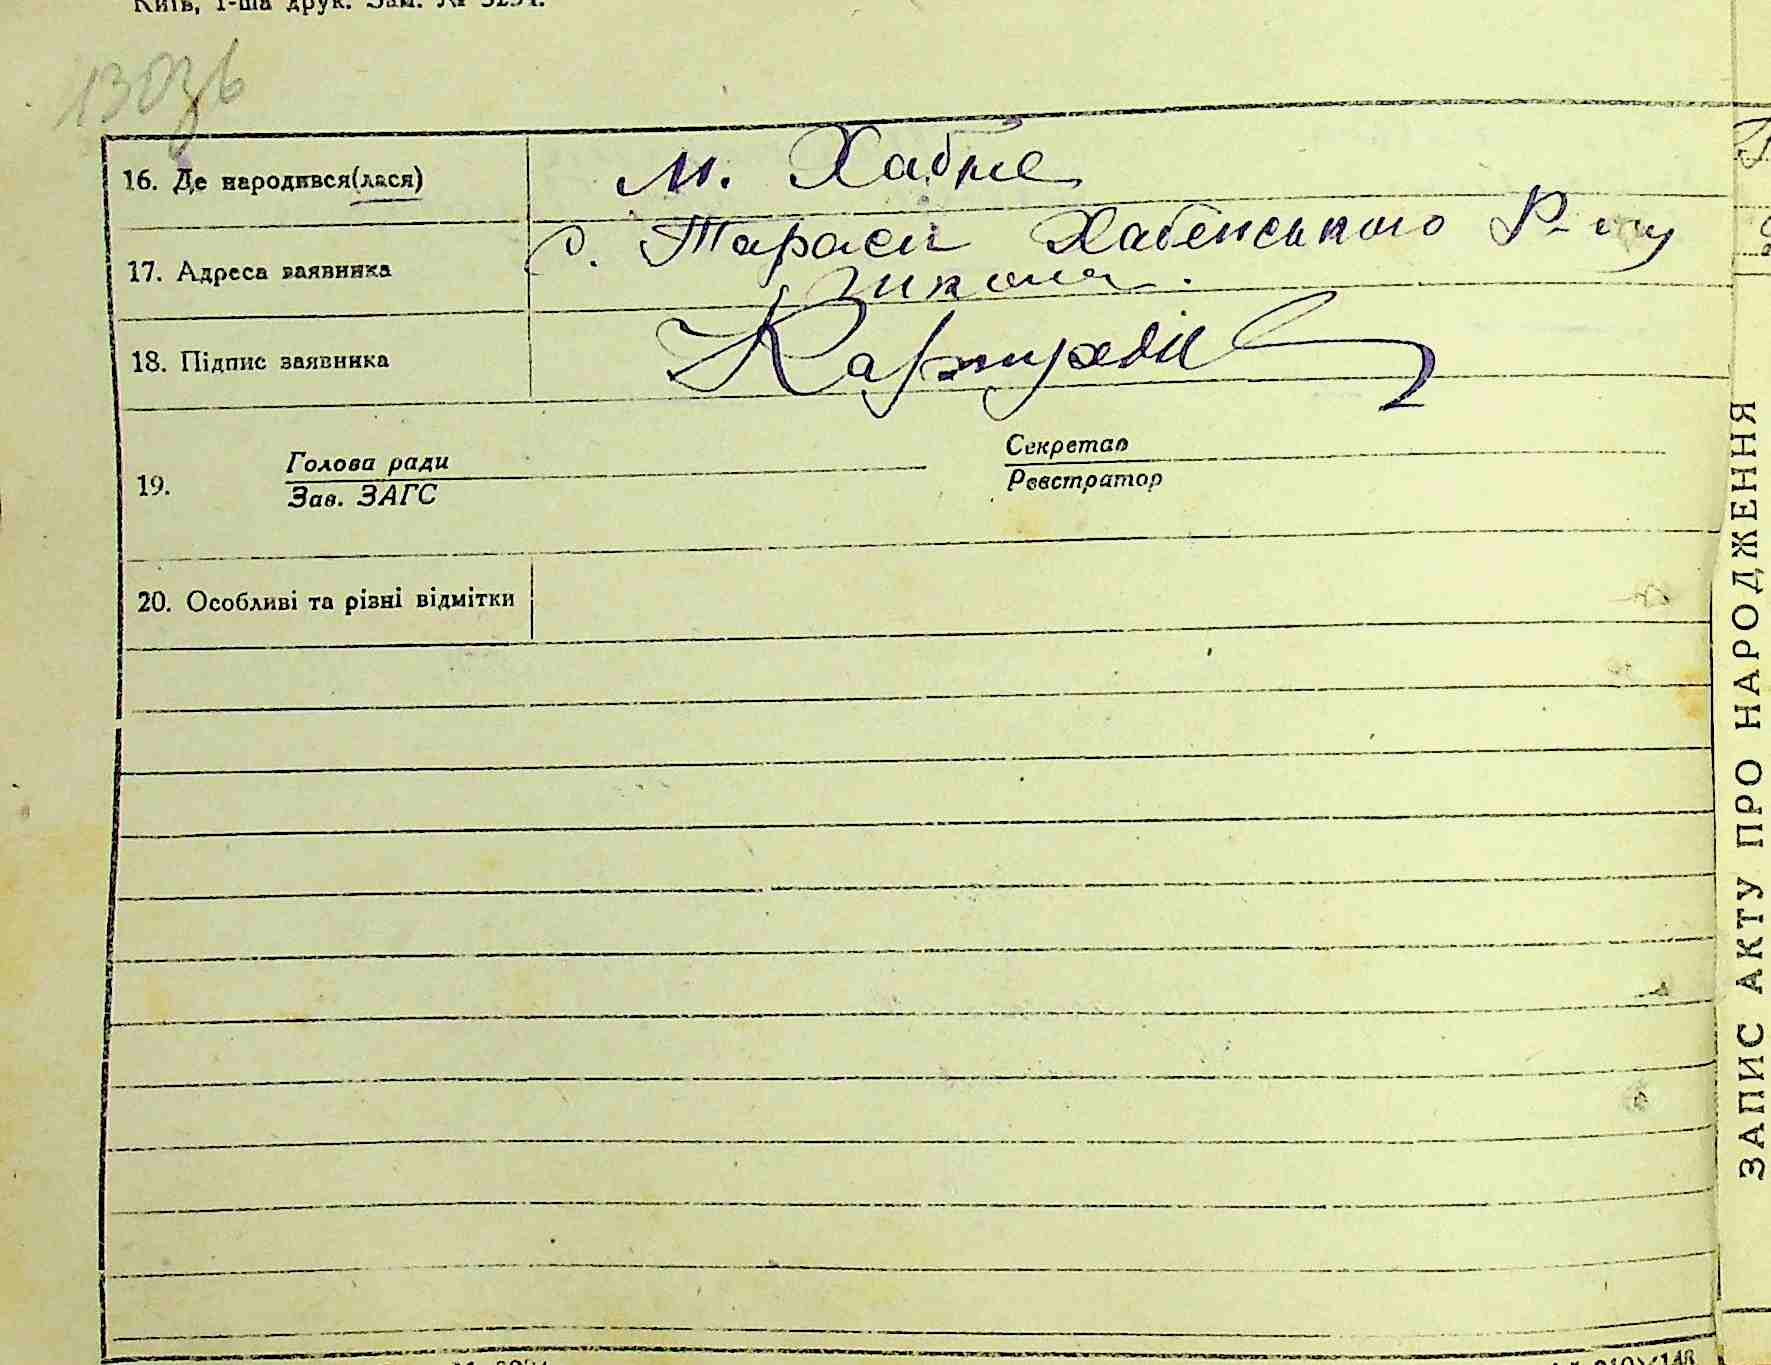 Київ, 1-ша друк. Зам. №
16. Де народився(лася) м. Хабне
17. Адреса заявника с. Тараси Хабенського Р-ну
школа.
18. Підпис заявника
19. Голова ради Секретар
Зав. ЗАГС Реєстратор
20. Особливі та різні відмітки
ЗАПИС АКТУ ПРО НАРОДЖЕННЯ